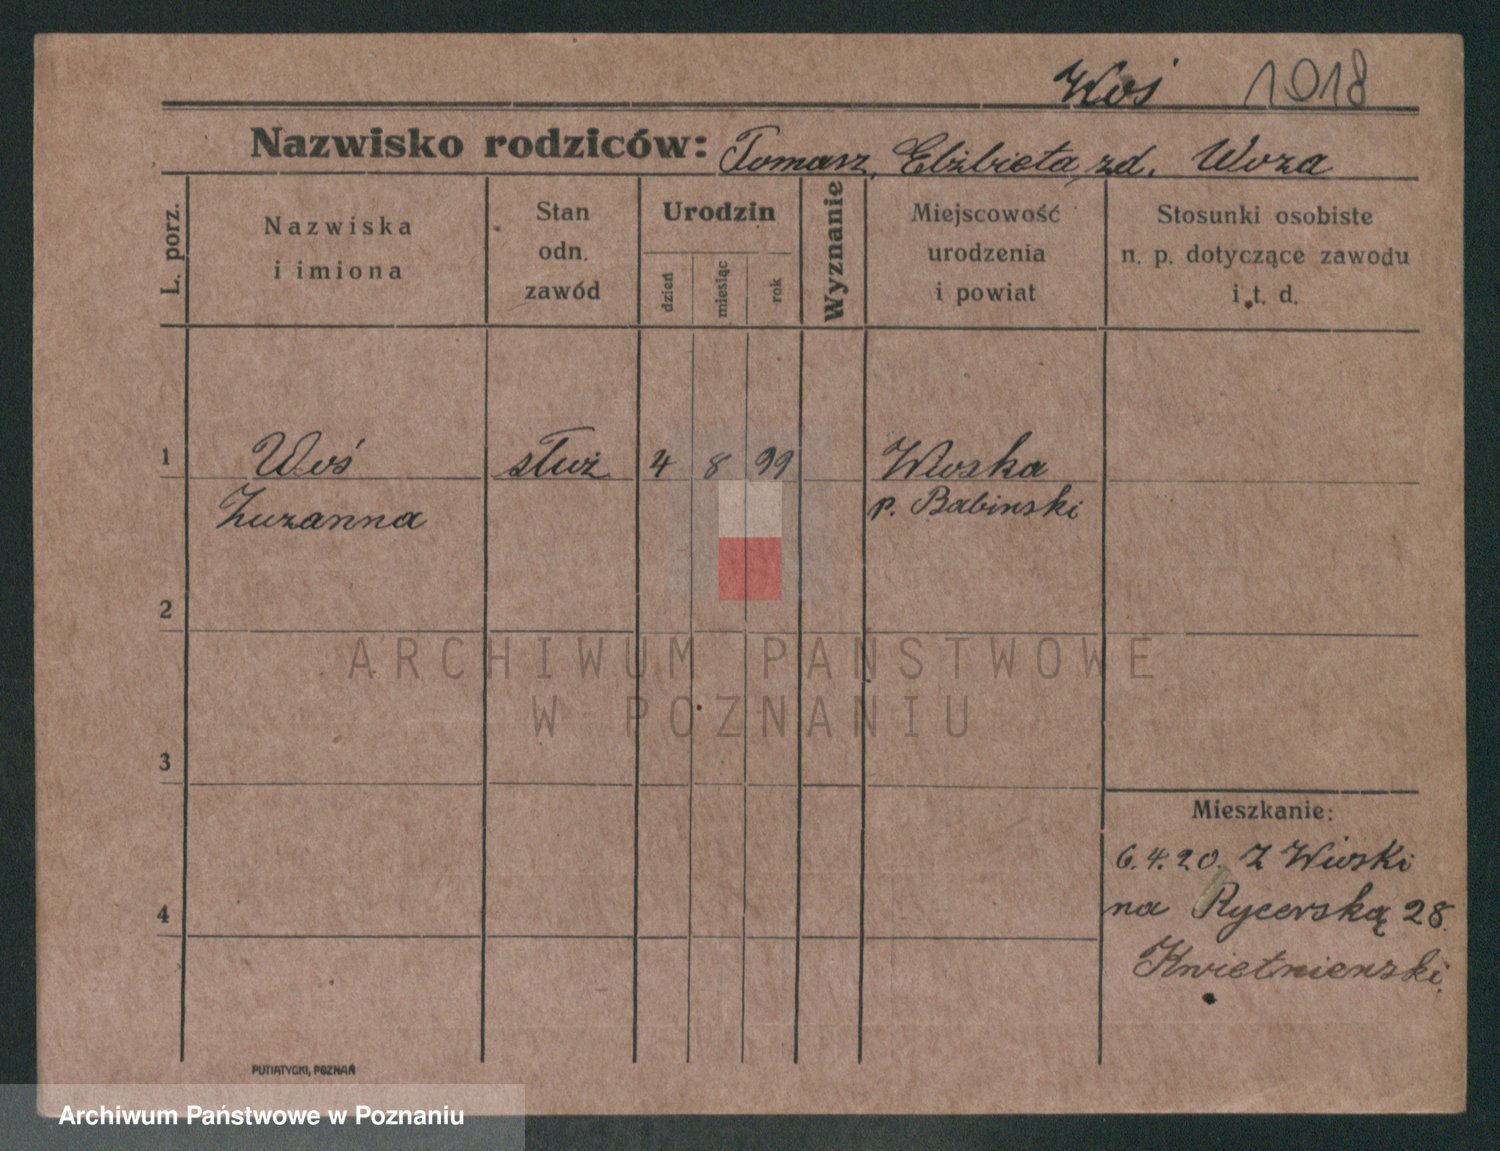 Woś 1018
Nazwisko rodziców: Tomasz, Elżbieta, zd. Woza
L. porz.
Nazwiska
i imiona
Stan
odn.
zawód
Urodzin
dzień
miesiąc
rok
Wyznanie
Miejscowość
urodzenia
i powiat
Stosunki osobiste
n. p. dotyczące zawodu
i t. d.
1 Woś służ 4 8 99 Wioska
Zuzanna p. Babinski
2
ARCHIWUM PAŃSTWOWE
W POZNANIU
3
Mieszkanie:
6.4.20. Z Wioski
4 na Rycerską 28.
Kwietnienski.
PUTIATYCKI, POZNAŃ
Archiwum Państwowe w Poznaniu